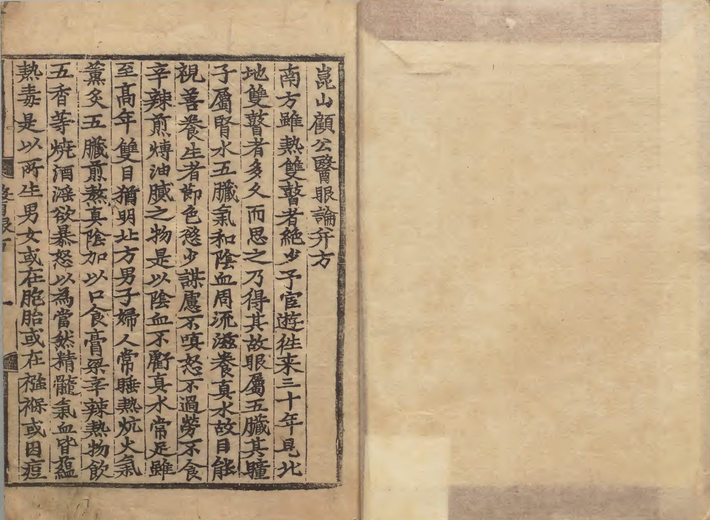 崑山顧公醫眼論幷方
南方雖熱雙瞽者絶少予官遊徃来三十年見北
地雙瞽者多久而思之乃得其故眼屬五臟其瞳
子屬腎水五臟氣和陰血周流滋養真水故目能
視善養生者節色慾少謀慮不嗔怒不過勞不食
辛辣煎煿油膩之物是以陰血不虧真水常足雖
至高年雙目猶明北方男子婦人常睡熱炕火氣
薰炙五臟煎熬真陰加以口食膏梁辛辣熱物飲
五香等燒酒滛欲暴怒以為當然精髓氣血皆蘊
熱毒是以所生男女或在胞胎或在襁褓或因痘
醫眼方
一